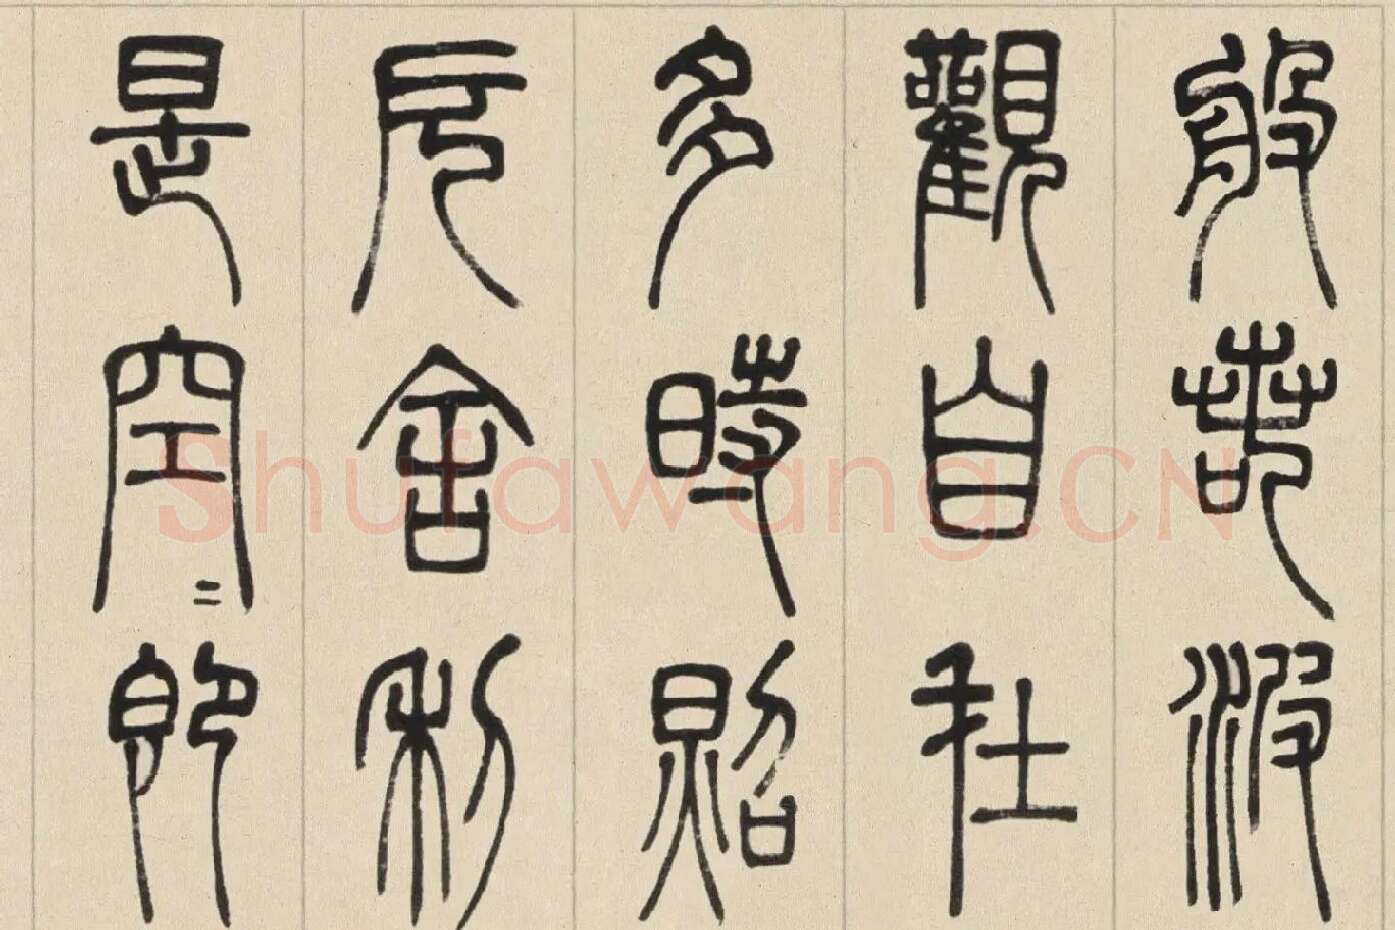 般若波
觀自在
多時照
色舍利
是空〻即
Shufawang.CN